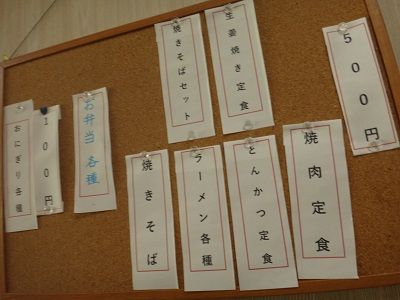 500円
生姜焼き定食
焼きそばセット
焼肉定食
とんかつ定食
ラーメン各種
焼きそば
お弁当 各種
100円
おにぎり各種